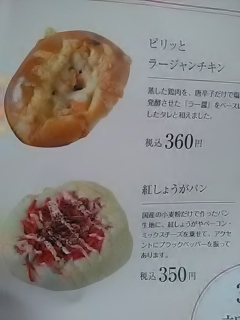 ピリッと
ラージャンチキン
蒸した鶏肉を、唐辛子だけで塩
発酵させた『ラー醤』をベースに
したタレと和えました。
税込360円
紅しょうがパン
国産の小麦粉だけで作ったパン
生地に、紅しょうがやベーコン・
ミックスチーズを乗せて、アクセ
ントにブラックペッパーを振って
あります。
税込350円